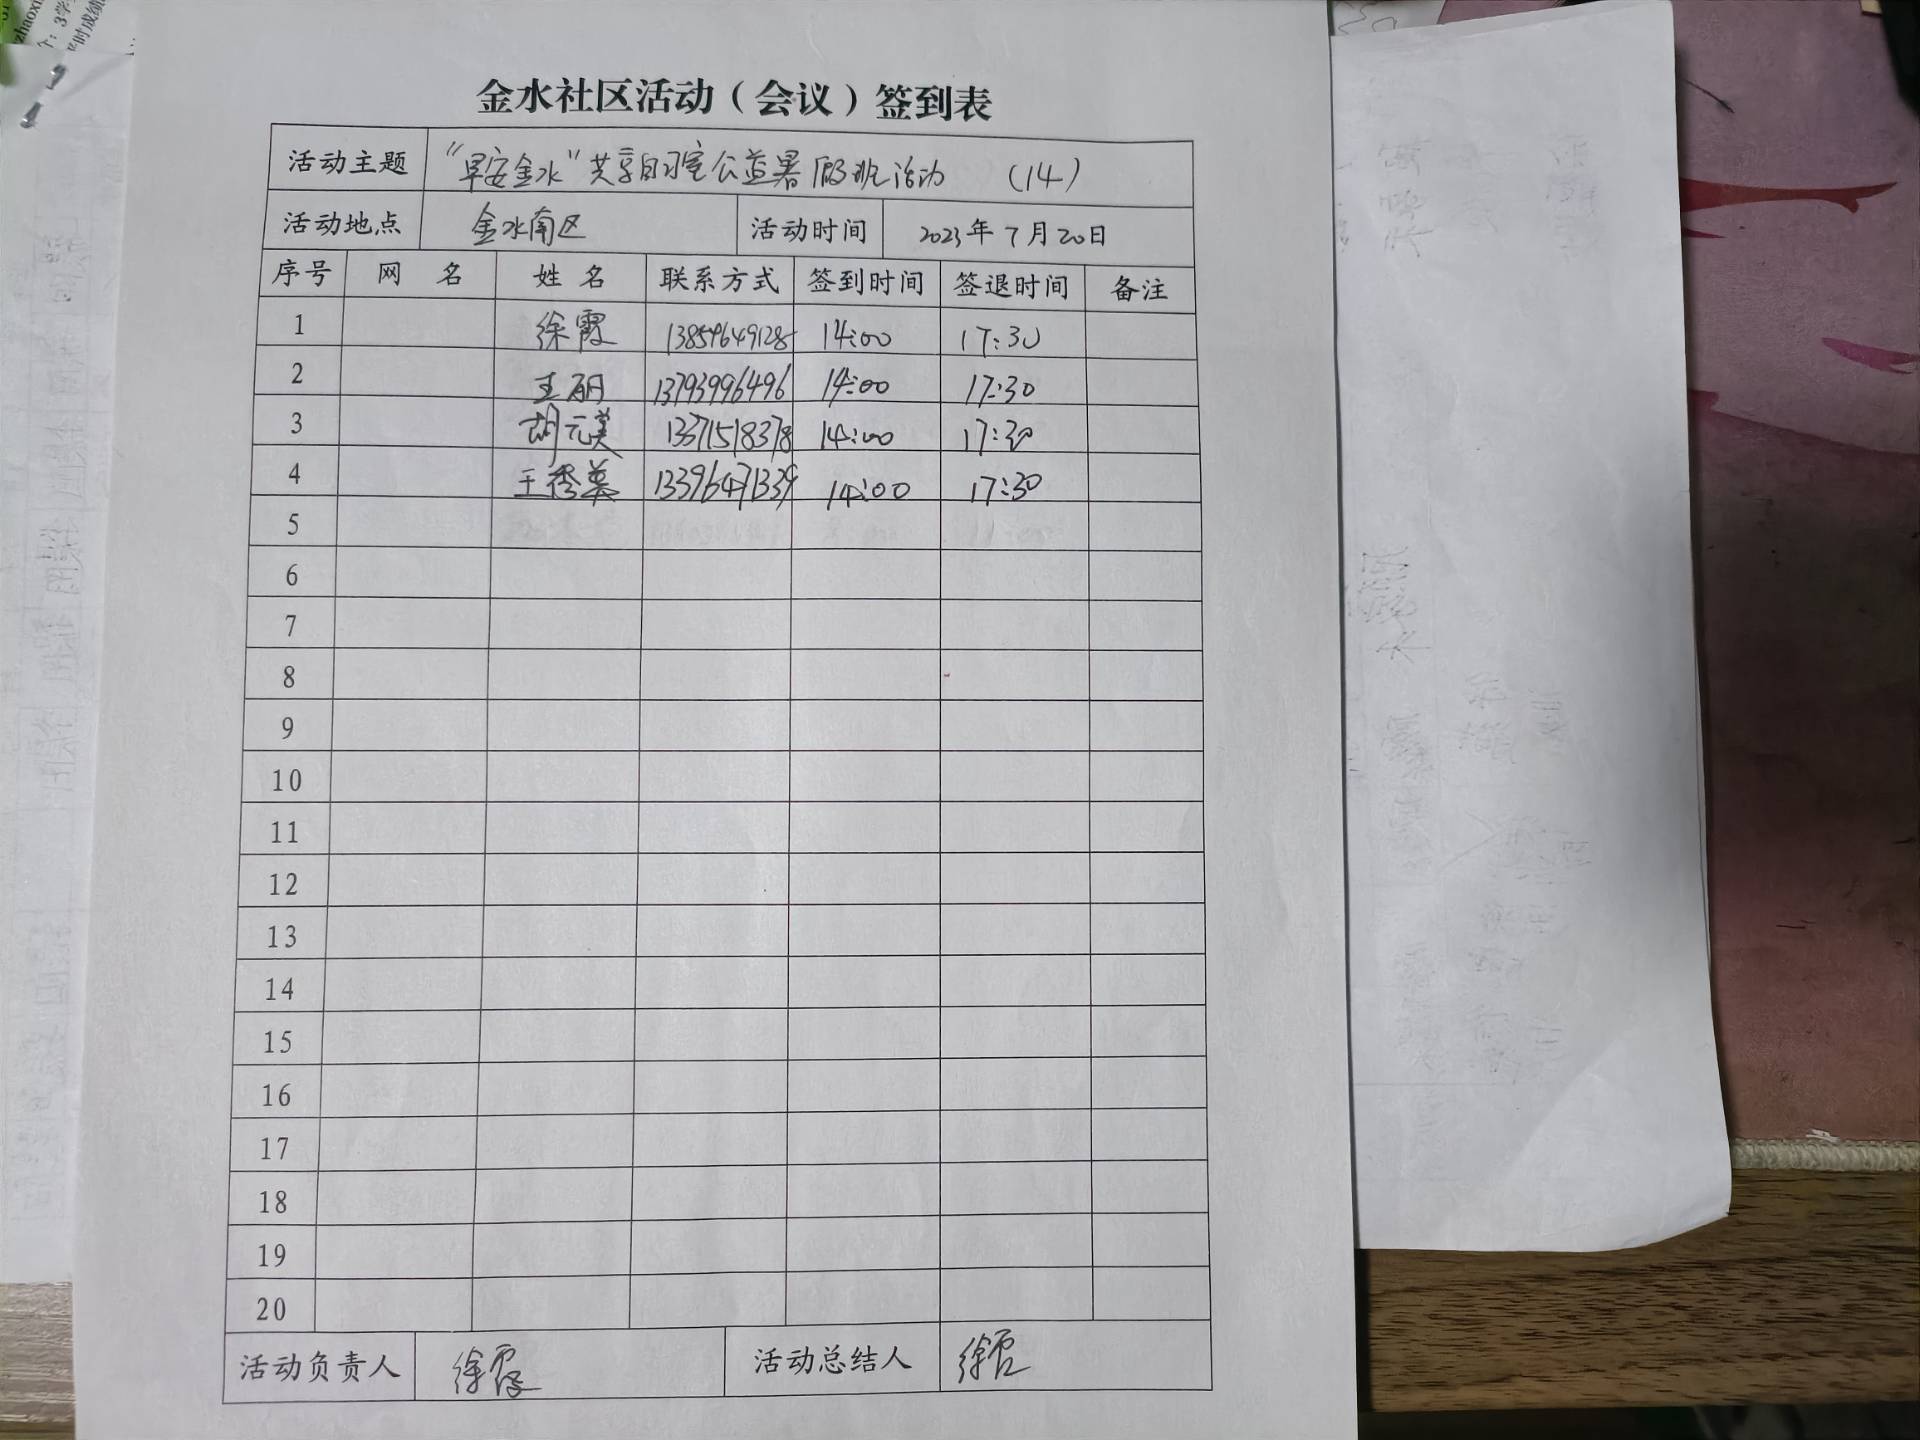 金水社区活动（会议）签到表
活动主题 “早安金水”共享自习室公益暑假班活动 （14）
活动地点 金水南区 活动时间 2023年7月20日
序号 网 名 姓 名 联系方式 签到时间 签退时间 备注
1 徐霞 13859649128 14:00 17:30
2 王丽 13793996496 14:00 17:30
3 胡元美 13371518378 14:00 17:30
4 王秀英 13396471339 14:00 17:30
5
6
7
8
9
10
11
12
13
14
15
16
17
18
19
20
活动负责人 徐霞 活动总结人 徐霞